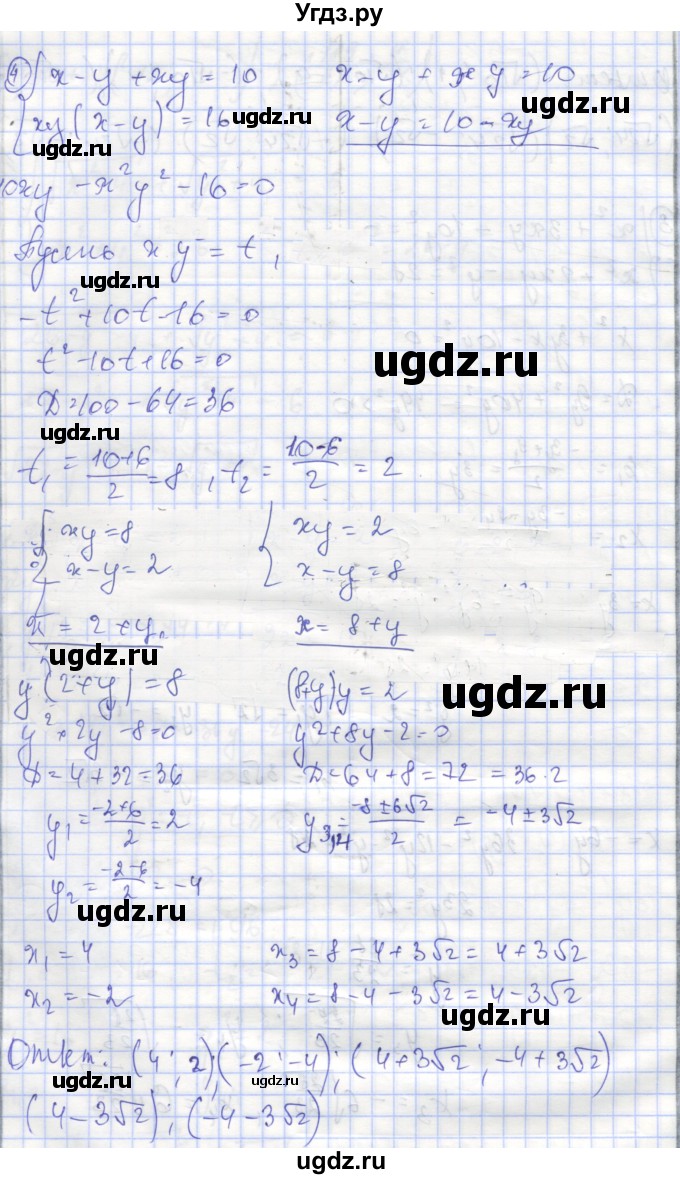 Угдз.ру
④ { x - y + xy = 10     x - y + xy = 10
{ xy(x - y) = 16     x - y = 10 - xy
ugdz.ru ugdz.ru
0xy - x²y² - 16 = 0
Пусть xy = t,
ugdz.ru
-t² + 10t - 16 = 0
t² - 10t + 16 = 0
ugdz.ru
D = 100 - 64 = 36
ugdz.ru
t₁ = (10+6)/2 = 8, t₂ = (10-6)/2 = 2
{ xy = 8     { xy = 2
{ x - y = 2     { x - y = 8
ugdz.ru ugdz.ru
x = 2 + y     x = 8 + y
ugdz.ru ugdz.ru
y(2+y) = 8     (8+y)y = 2
y² + 2y - 8 = 0     y² + 8y - 2 = 0
D = 4 + 32 = 36     D = 64 + 8 = 72 = 36·2
y₁ = (-2+6)/2 = 2     y₃,₄ = (-8±6√2)/2 = -4±3√2
y₂ = (-2-6)/2 = -4
ugdz.ru
x₁ = 4     x₃ = 8 - 4 + 3√2 = 4 + 3√2
x₂ = -2     x₄ = 8 - 4 - 3√2 = 4 - 3√2
ugdz.ru
Ответ: (4; 2); (-2; -4); (4+3√2; -4+3√2)
ugdz.ru ugdz.ru
(4-3√2); (-4-3√2)
ugdz.ru
ugdz.ru